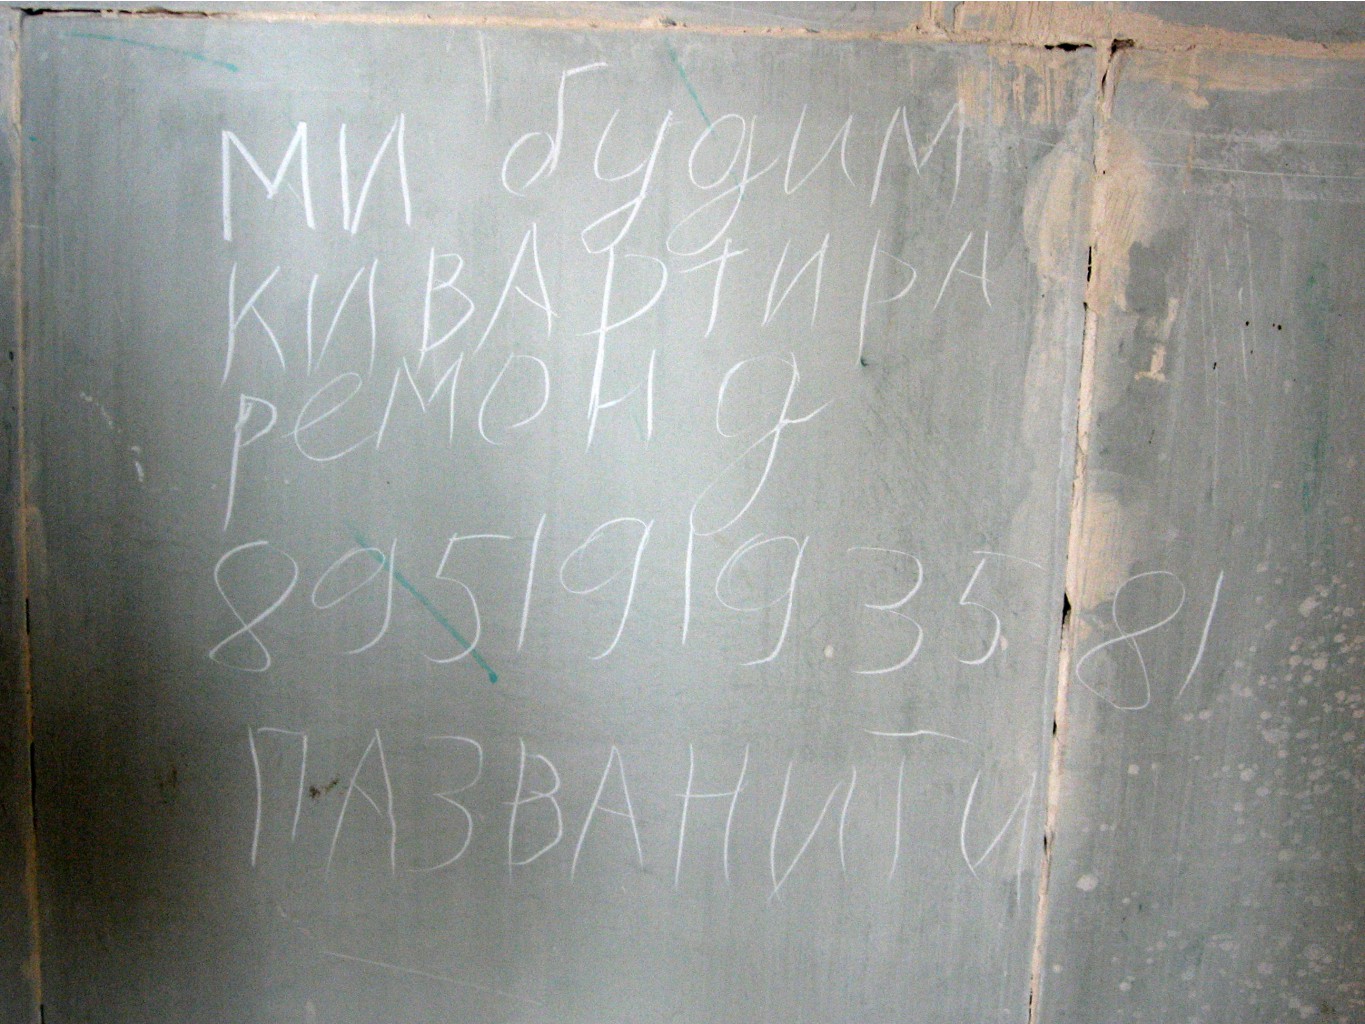 МИ будим
КИВАРТИРА
ремонд
89519193581
ПАЗВАНИТИ